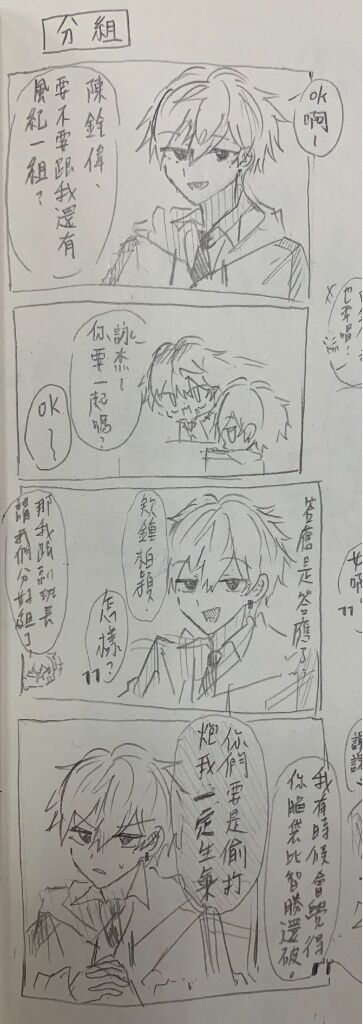 分組
陳銓偉、
要不要跟我還有
風紀一組？
OK
啊~
詠杰~
你要一起嗎？
OK~
答應是答應了
欸鍾柏穎
怎樣？
那我跟副班長
講我們分好組了
你們要是偷打
炮我一定生氣
我有時候會覺得
你腦袋比智勝還破。
也要唱？